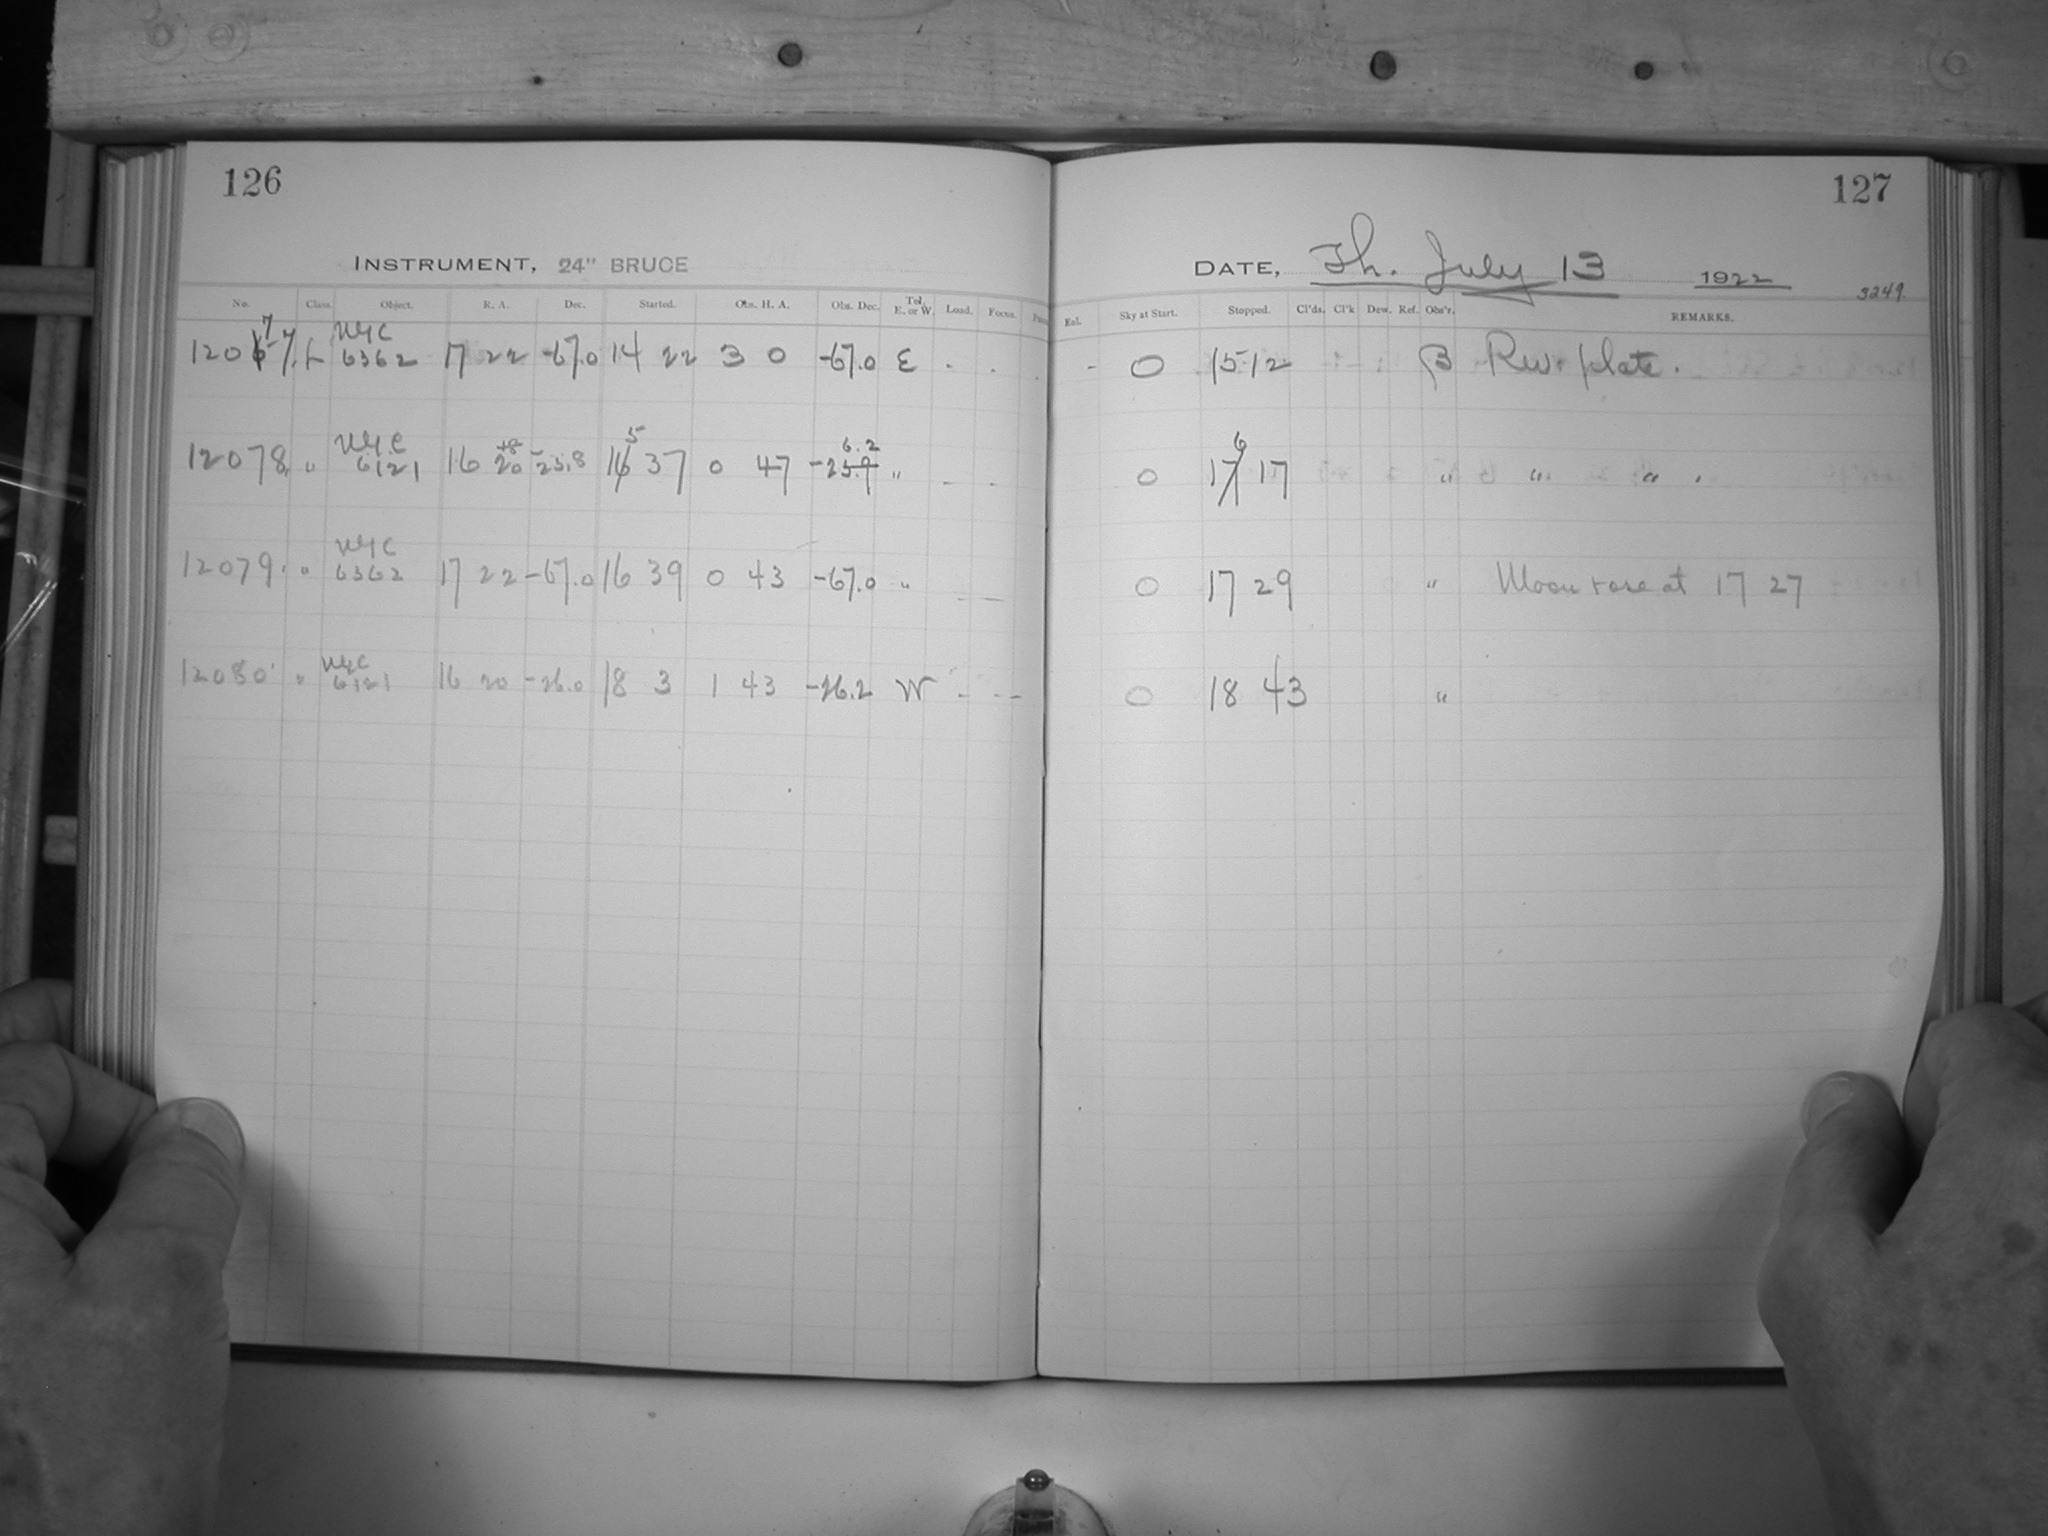 126
127
INSTRUMENT, 24" BRUCE
DATE, Th. July 13 1922
3249.
No. Class. Object. R. A. Dec. Started. Obs. H. A. Obs. Dec. Tel. E. or W. Load. Focus.
Enl. Sky at Start. Stopped. Cl'ds. Cl'k Dew. Ref. Obs'r. REMARKS.
12077. L 6362 17 22 -67.0 14 22 3 0 -67.0 E
- 0 15 12 B Rev. plate.
12078 " 6121 16 20 -25.8 15 37 0 47 -26.2 "
0 16 17 " " "
12079. " 6362 17 22 -67.0 16 39 0 43 -67.0 "
0 17 29 " Moon rose at 17 27
12080 " 6121 16 20 -26.0 18 3 1 43 -26.2 W - - -
0 18 43 "